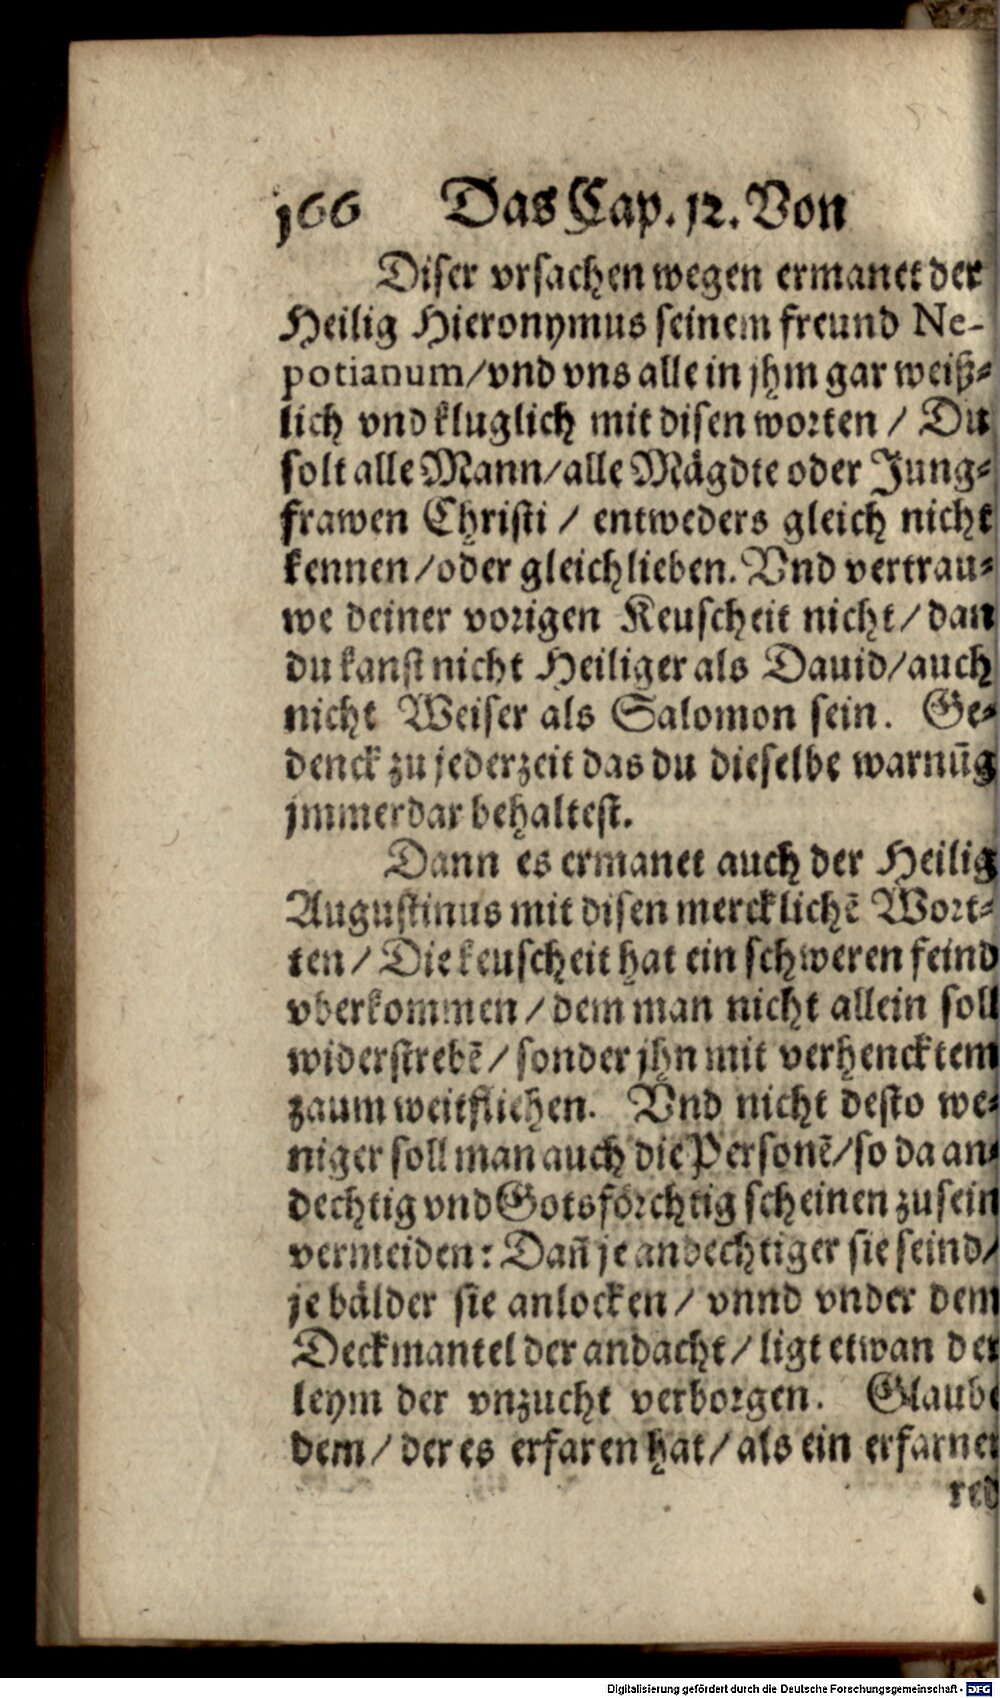 166 Das Cap. 12. Von
Diser vrsachen wegen ermanet der
Heilig Hieronymus seinem freund Ne-
potianum/vnd vns alle in jhm gar weiß-
lich vnd kluglich mit disen worten / Du
solt alle Mann/alle Mägdte oder Jung-
frawen Christi / entweders gleich nicht
kennen/oder gleich lieben. Vnd vertrau-
we deiner vorigen Keuscheit nicht/dan
du kanst nicht Heiliger als Dauid/auch
nicht Weiser als Salomon sein. Ge-
denck zu jederzeit das du dieselbe warnūg
jmmerdar behaltest.
Dann es ermanet auch der Heilig
Augustinus mit disen mercklichē Wort-
ten / Die keuscheit hat ein schweren feind
vberkommen / dem man nicht allein soll
widerstrebē / sonder jhn mit verhencktem
zaum weitfliehen. Vnd nicht desto we-
niger soll man auch die Personē/so da an-
dechtig vnd Gotsförchtig scheinen zu sein
vermeiden: Dañ je andechtiger sie seind/
je bälder sie anlocken / vnnd vnder dem
Deckmantel der andacht/ ligt etwan der
leym der vnzucht verborgen. Glaube
dem/ der es erfaren hat/ als ein erfarner
red
Digitalisierung gefördert durch die Deutsche Forschungsgemeinschaft - DFG